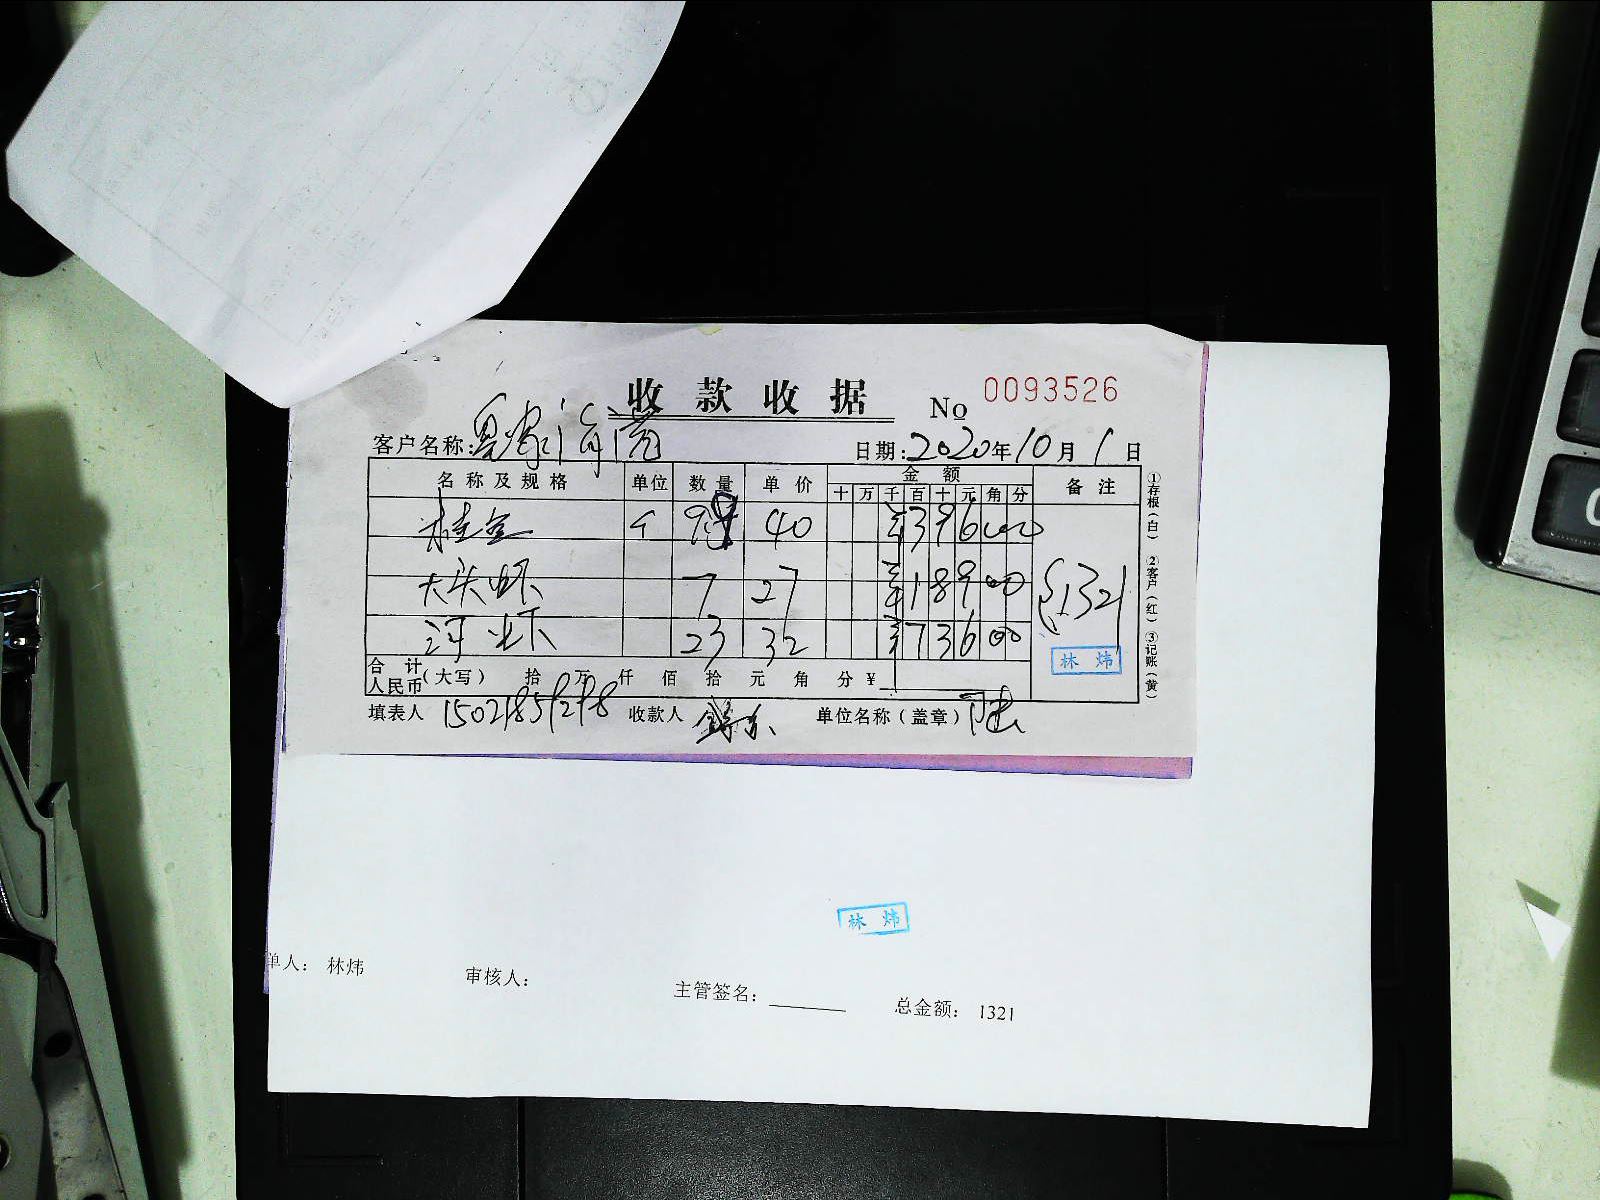 收款收据
No 0093526
客户名称:
日期:2020年10月1日
名称及规格 单位 数量 单价 金额 备注
十 万 千 百 十 元 角 分
桂鱼 个 9.9 40 ¥39600
大头虾 7 27 ¥18900
河虾 23 32 ¥73600
1321
林炜
合计人民币(大写) 拾 万 仟 佰 拾 元 角 分 ¥
填表人 15021859298 收款人 单位名称(盖章)
①存根(白) ②客户(红) ③记账(黄)
林炜
单人: 林炜 审核人: 主管签名: 总金额: 1321